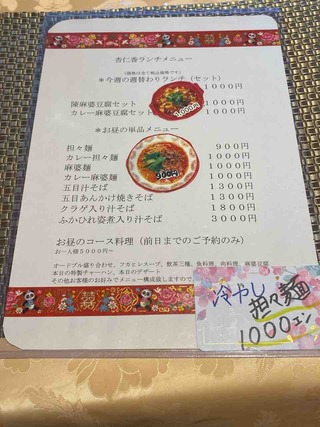 杏仁香ランチメニュー
(価格は全て税込価格です)
*今週の週替わりランチ（セット）
1000円
陳麻婆豆腐セット 1000円
カレー麻婆豆腐セット
1,000円
*お昼の単品メニュー
担々麺 900円
カレー担々麺 1000円
麻婆麺 1000円
カレー麻婆麺 1000円
五目汁そば 1300円
五目あんかけ焼きそば 1300円
クラゲ入り汁そば 1800円
ふかひれ姿煮入り汁そば 3000円
900円
お昼のコース料理（前日までのご予約のみ）
お一人様5000円～
オードブル盛り合わせ、フカヒレスープ、飲茶三種、魚料理、肉料理、麻婆豆腐
本日の特製チャーハン、本日のデザート
その他お客様のお好みでメニュー構成致しますので、
冷やし
担々麺
1000エン